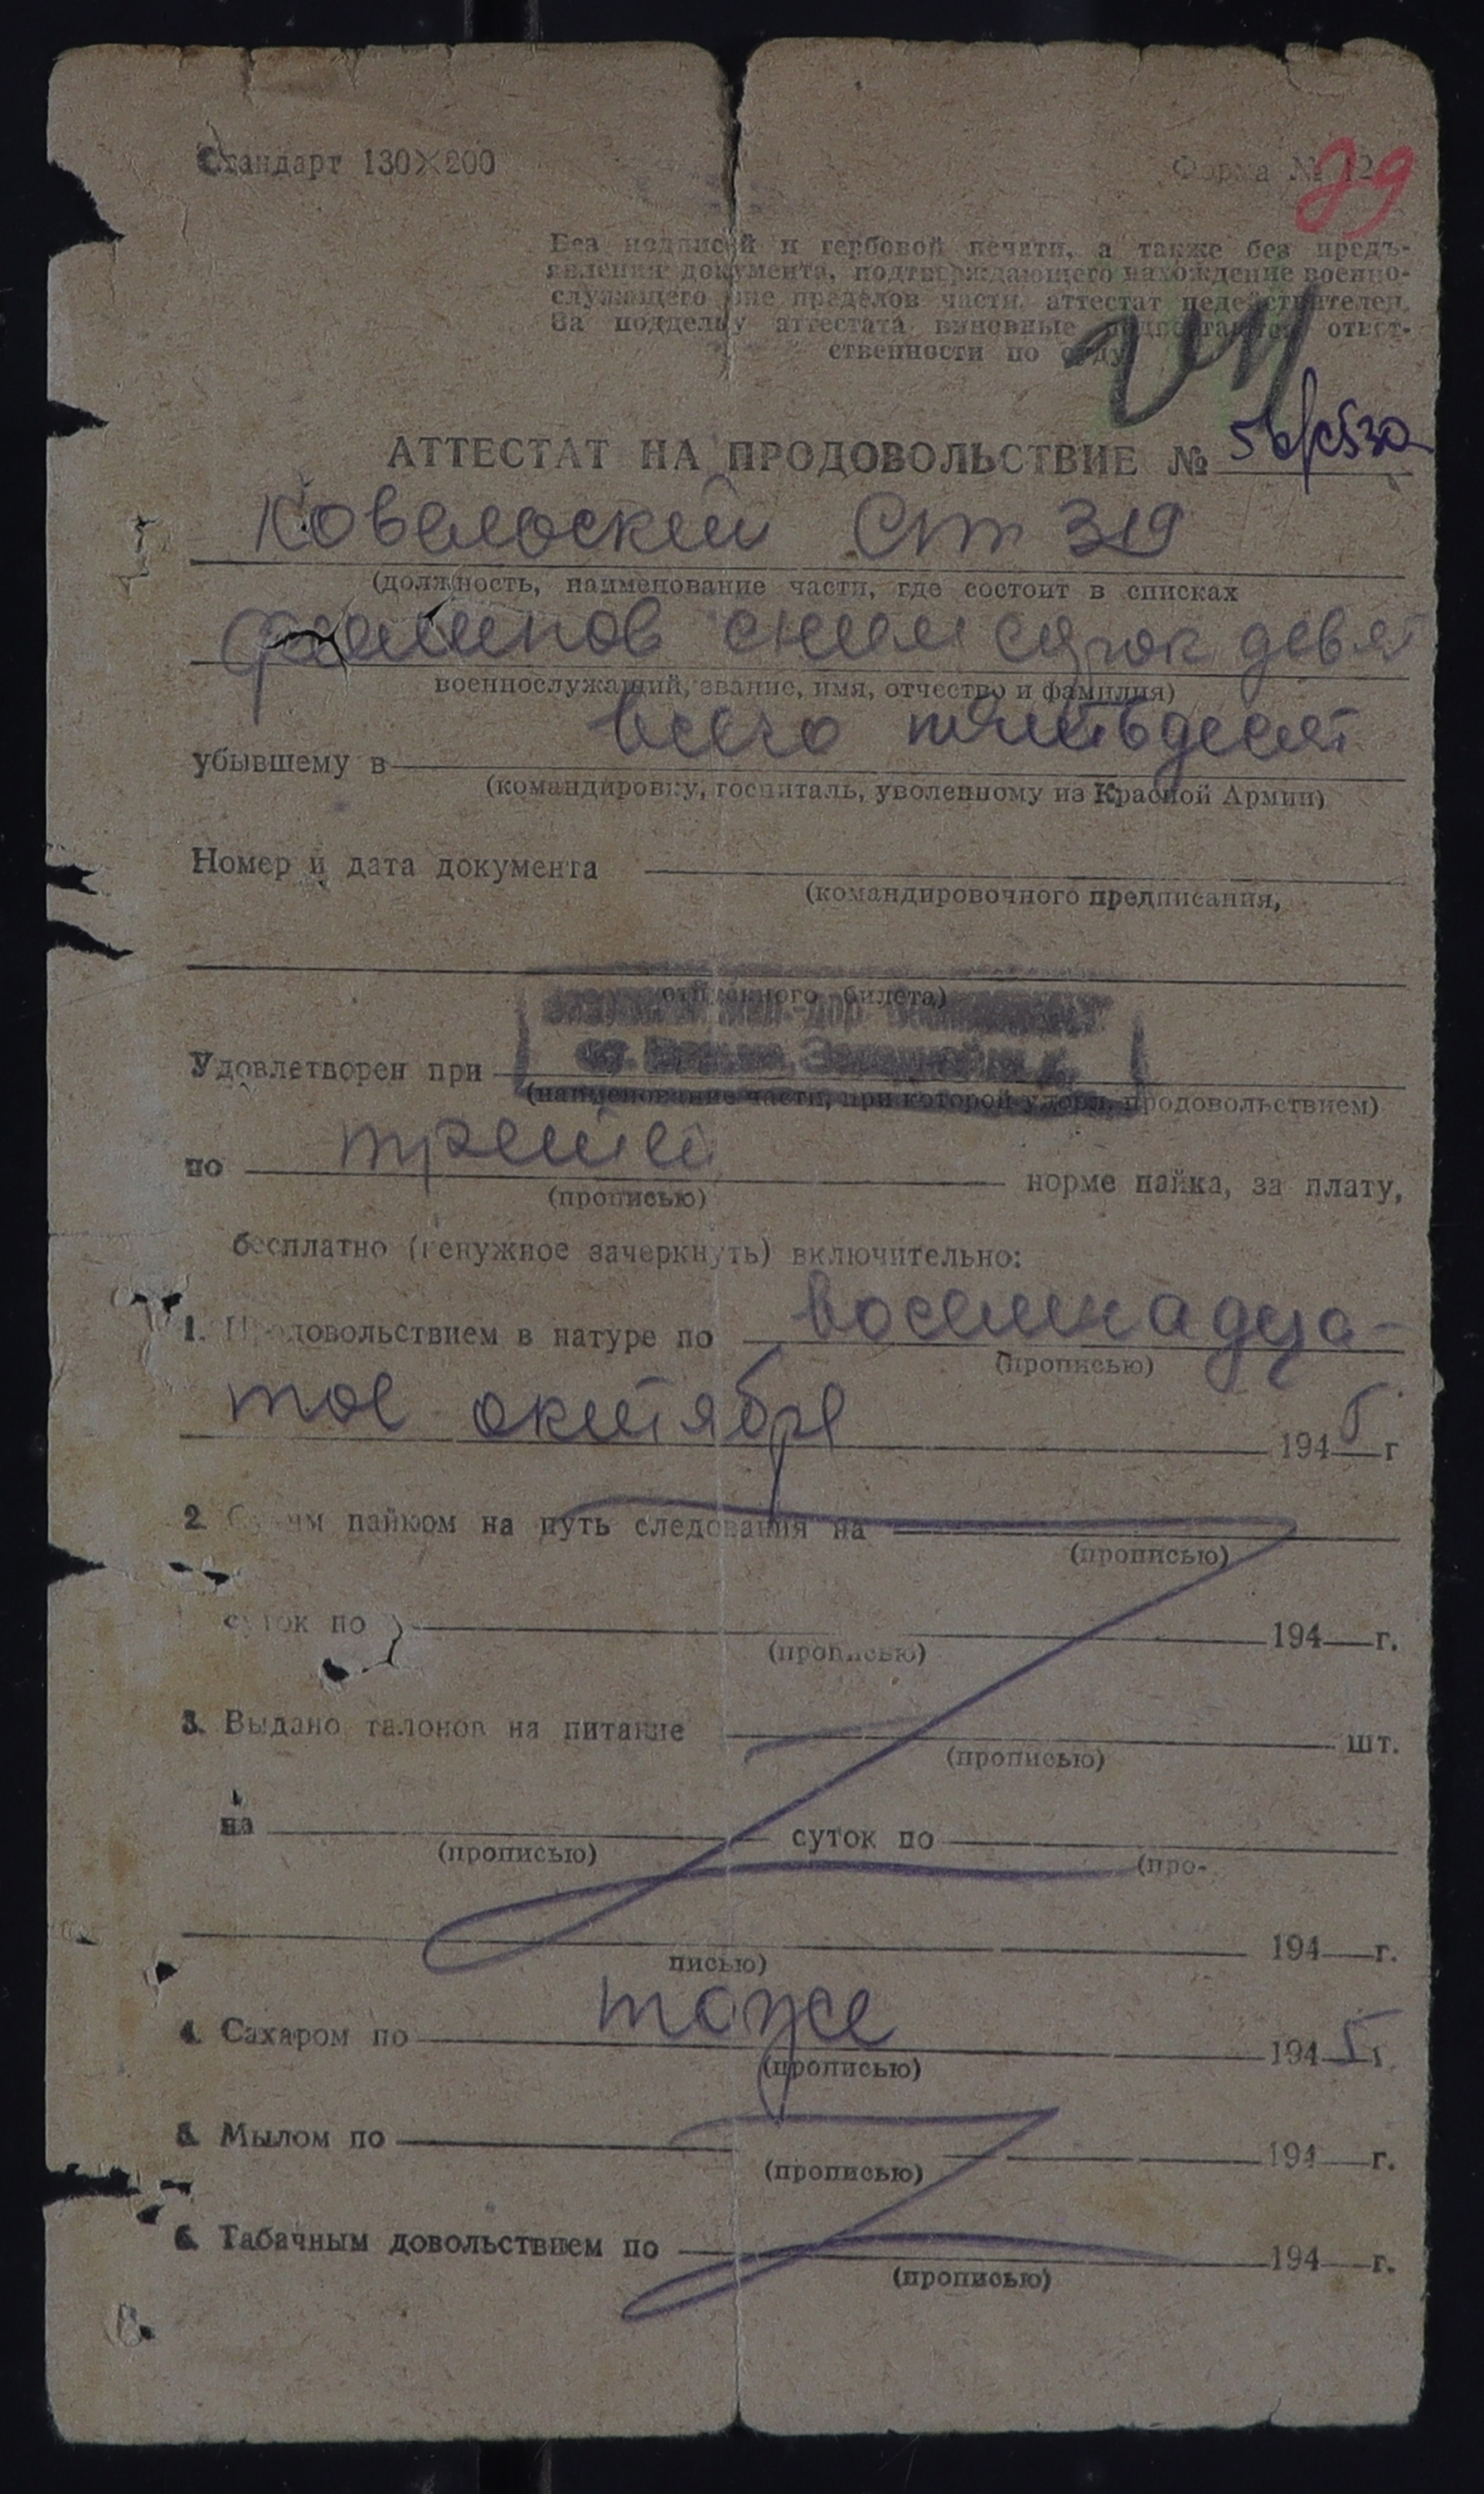 Стандарт 130×200
Форма № 12
29
Без подписей и гербовой печати, а также без предъ-
явления документа, подтверждающего нахождение военно-
служащего вне пределов части, аттестат недействителен.
За подделку аттестата виновные подлегают отвст-
ственности по суду
АТТЕСТАТ НА ПРОДОВОЛЬСТВИЕ №
Ст 319
(должность, наименование части, где состоит в списках
Филипов сним сорок девят
военнослужащий, звание, имя, отчество и фамилия)
всего пятьдесят
убывшему в
(командировку, госпиталь, уволенному из Красной Армии)
Номер и дата документа
(командировочного предписания,
отпускного билета)
Удовлетворен при
(наименование части, при которой удовл. продовольствием)
по третей норме пайка, за плату,
(прописью)
бесплатно (ненужное зачеркнуть) включительно:
1. Продовольствием в натуре по восемнадца-
(прописью)
тое октября 1945 г
2. Сухим пайком на путь следования на
(прописью)
суток по 194 г.
(прописью)
3. Выдано талонов на питание шт.
(прописью)
на суток по
(прописью) (про-
194 г.
писью)
4. Сахаром по тоже 1945 г.
(прописью)
5. Мылом по 194 г.
(прописью)
6. Табачным довольствием по 194 г.
(прописью)